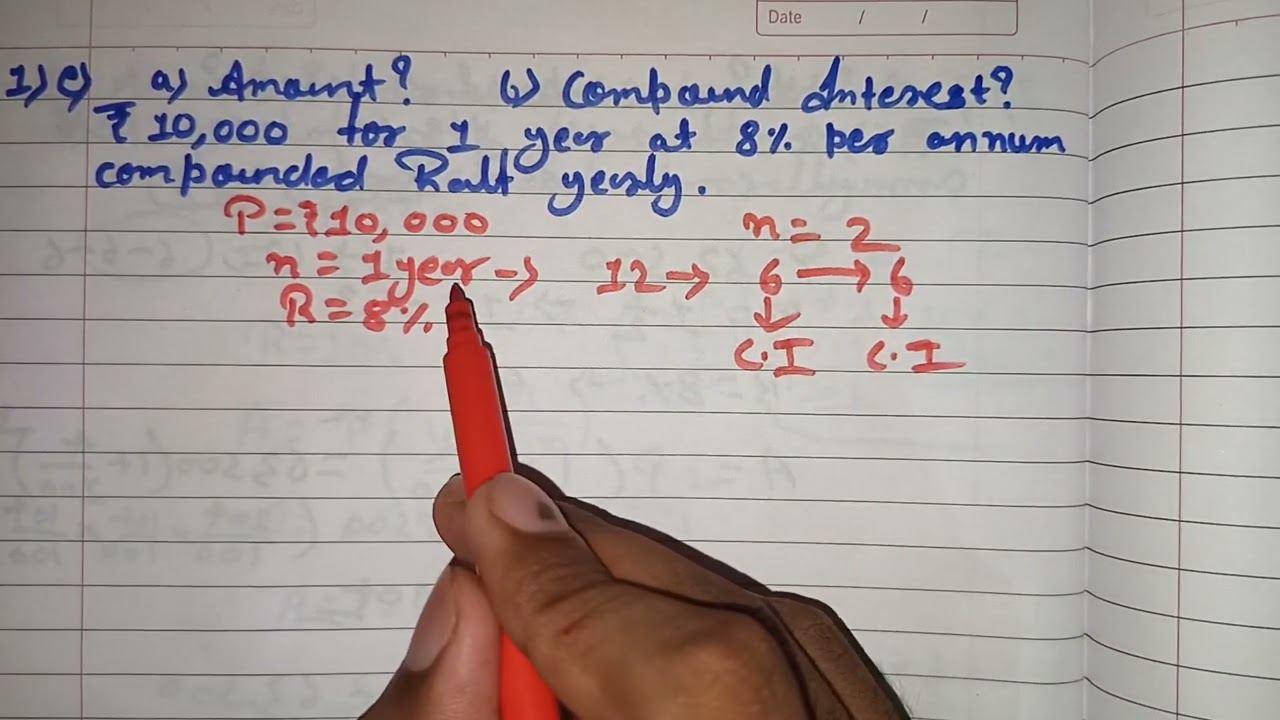 Date / /
1) e) a) Amount? b) Compound Interest?
₹ 10,000 for 1 year at 8% per annum
compounded Half yearly.
P = ₹10,000 n = 2
n = 1 year → 12 → 6 → 6
R = 8% ↓ ↓
C.I C.I